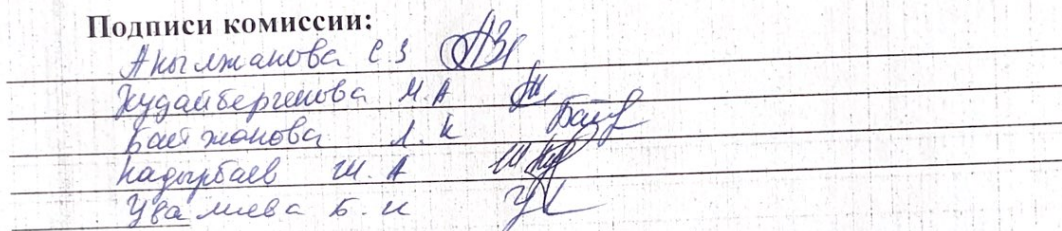 Подписи комиссии:
Акылжанова С.З
Худайбергенова М.А
Баитжанова Л.К
Кадырбаев Ш.А
Увалиева Б.К